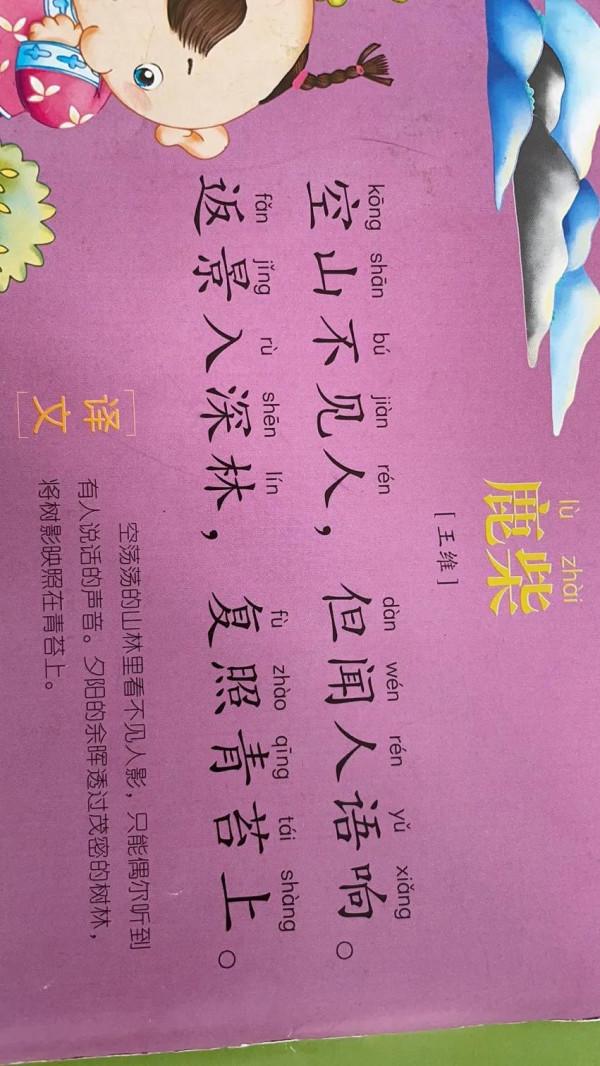 lù zhài
鹿柴
[王维]
kōng shān bú jiàn rén dàn wén rén yǔ xiǎng
空山不见人，但闻人语响。
fǎn jǐng rù shēn lín fù zhào qīng tái shàng
返景入深林，复照青苔上。
[译文]
空荡荡的山林里看不见人影，只能偶尔听到
有人说话的声音。夕阳的余晖透过茂密的树林，
将树影映照在青苔上。